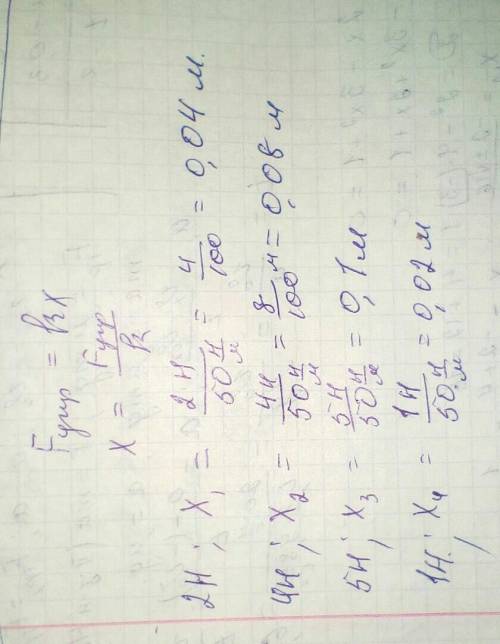 Fупр = kx
x = Fупр/k
2H; x₁ = 2H/50 H/м = 4/100 = 0,04 м.
4H; x₂ = 4H/50 H/м = 8/100 м = 0,08 м
5H; x₃ = 5H/50 H/м = 0,1 м
1H; x₄ = 1H/50 H/м = 0,02 м